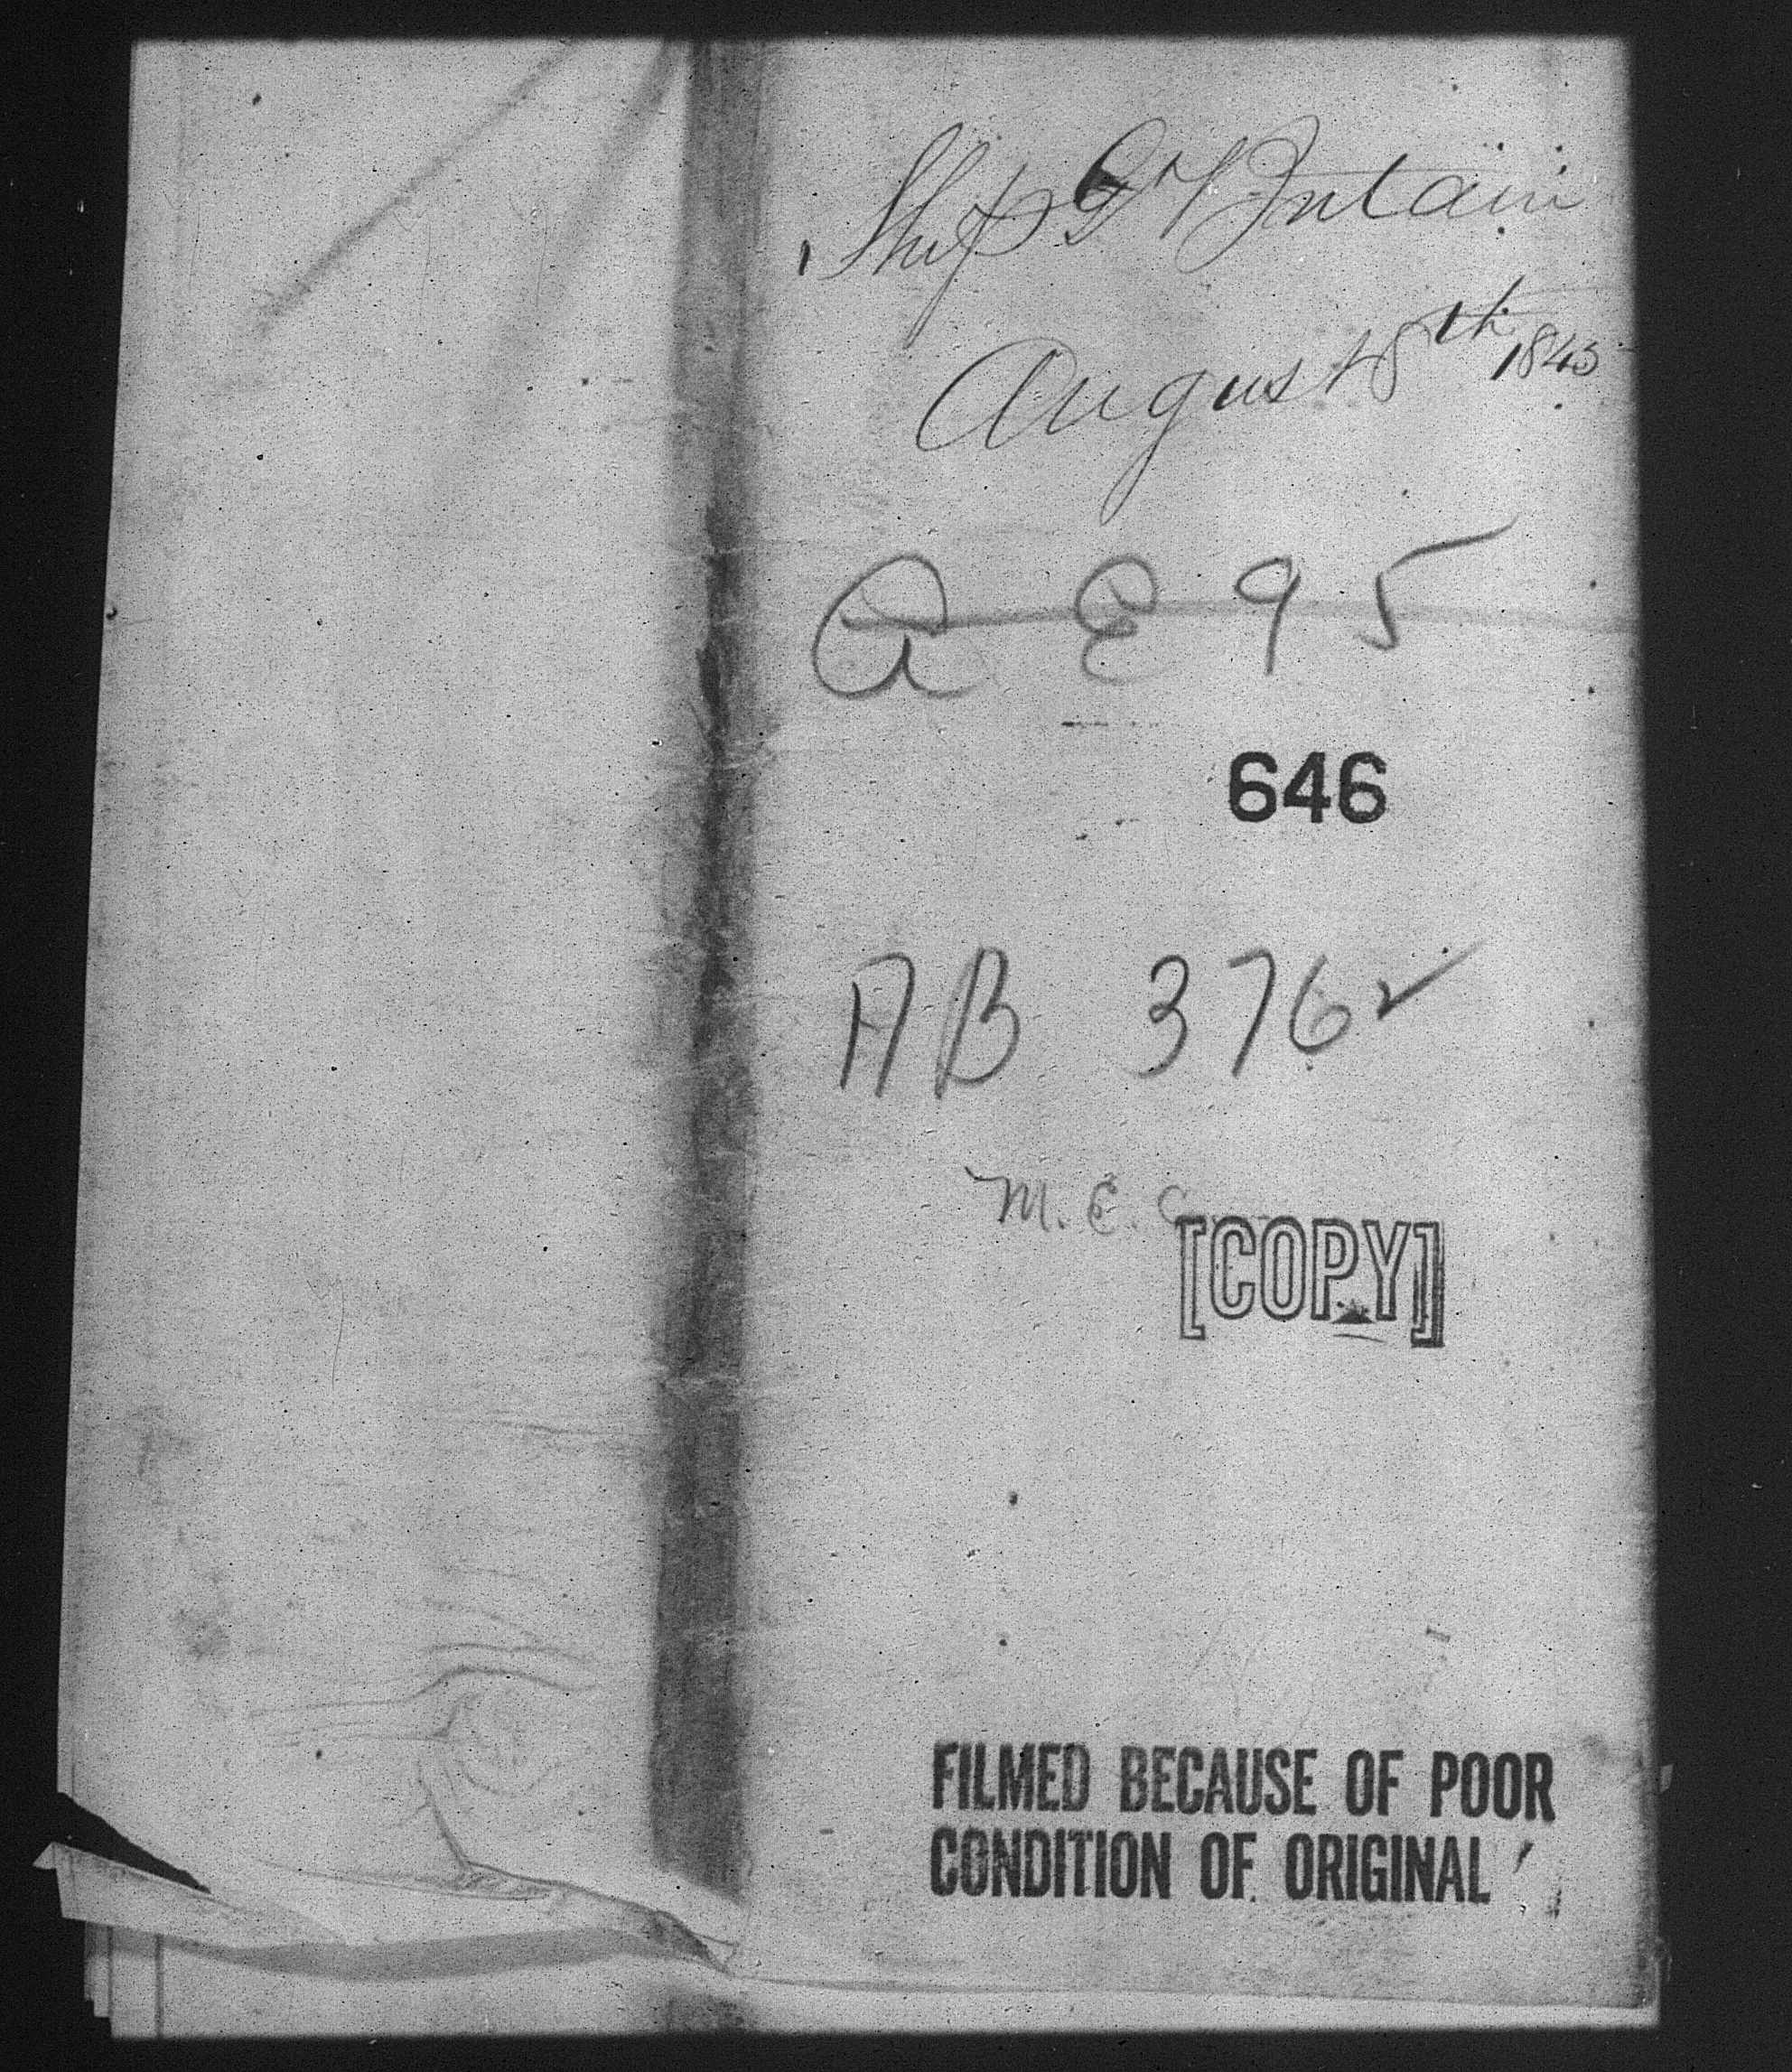 Ship Gt Britain
August 8th 1845
A E 95
646
AB 376 ✓
M. E. C.
[COPY]
FILMED BECAUSE OF POOR
CONDITION OF ORIGINAL